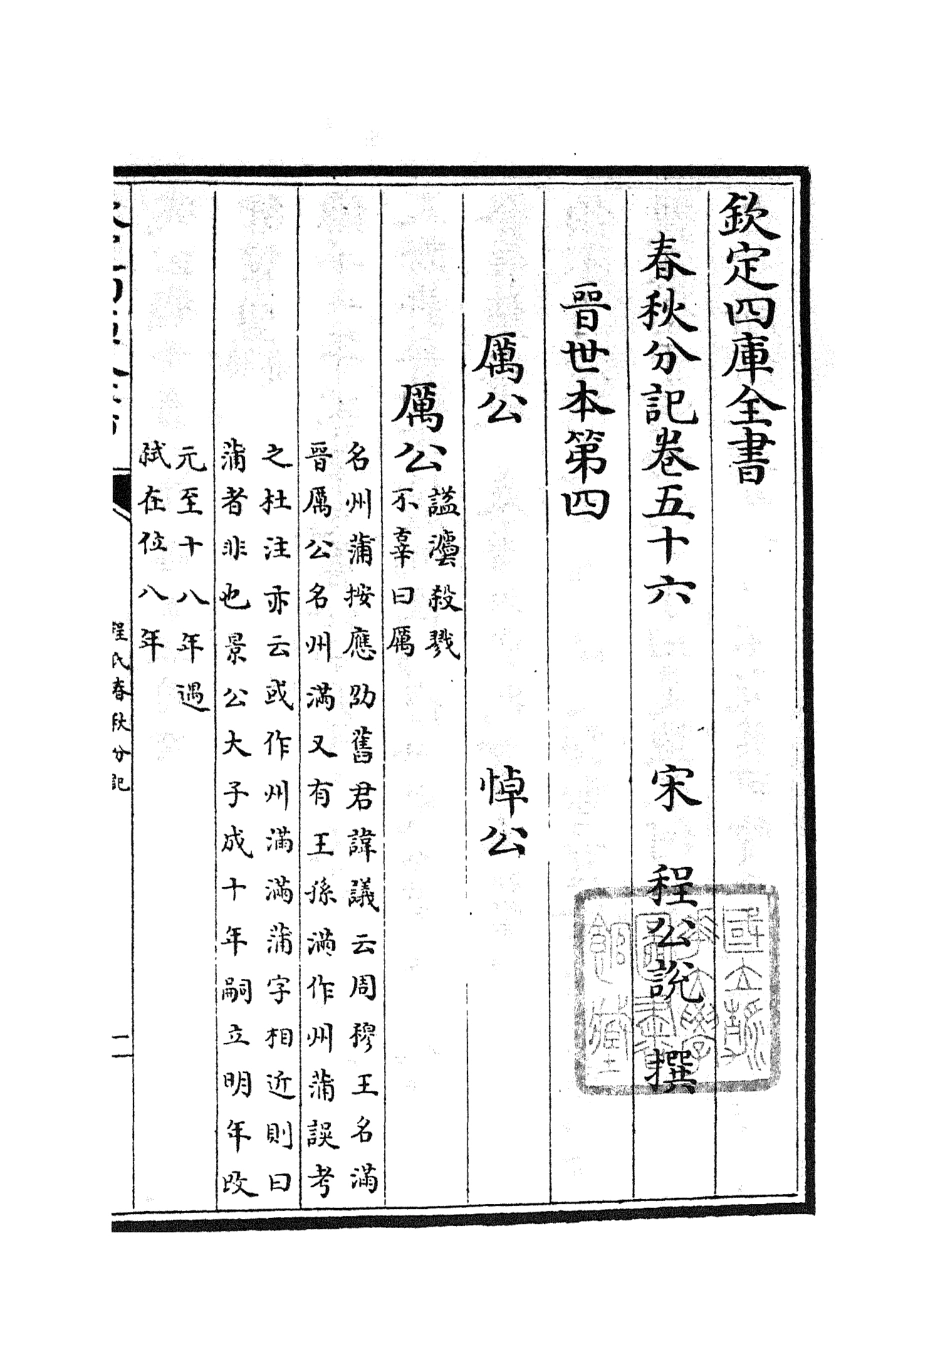 欽定四庫全書
春秋分記卷五十六 宋 程公說 撰
晉世本第四
厲公 悼公
厲公
諡灋殺戮
不辜曰厲
名州蒲按應劭舊君諱議云周穆王名滿
晉厲公名州滿又有王孫滿作州蒲誤考
之杜注亦云或作州滿滿蒲字相近則曰
蒲者非也景公大子成十年嗣立明年改
元至十八年遇
弑在位八年
程氏春秋分記
國立浙
江大學
圖書
館藏